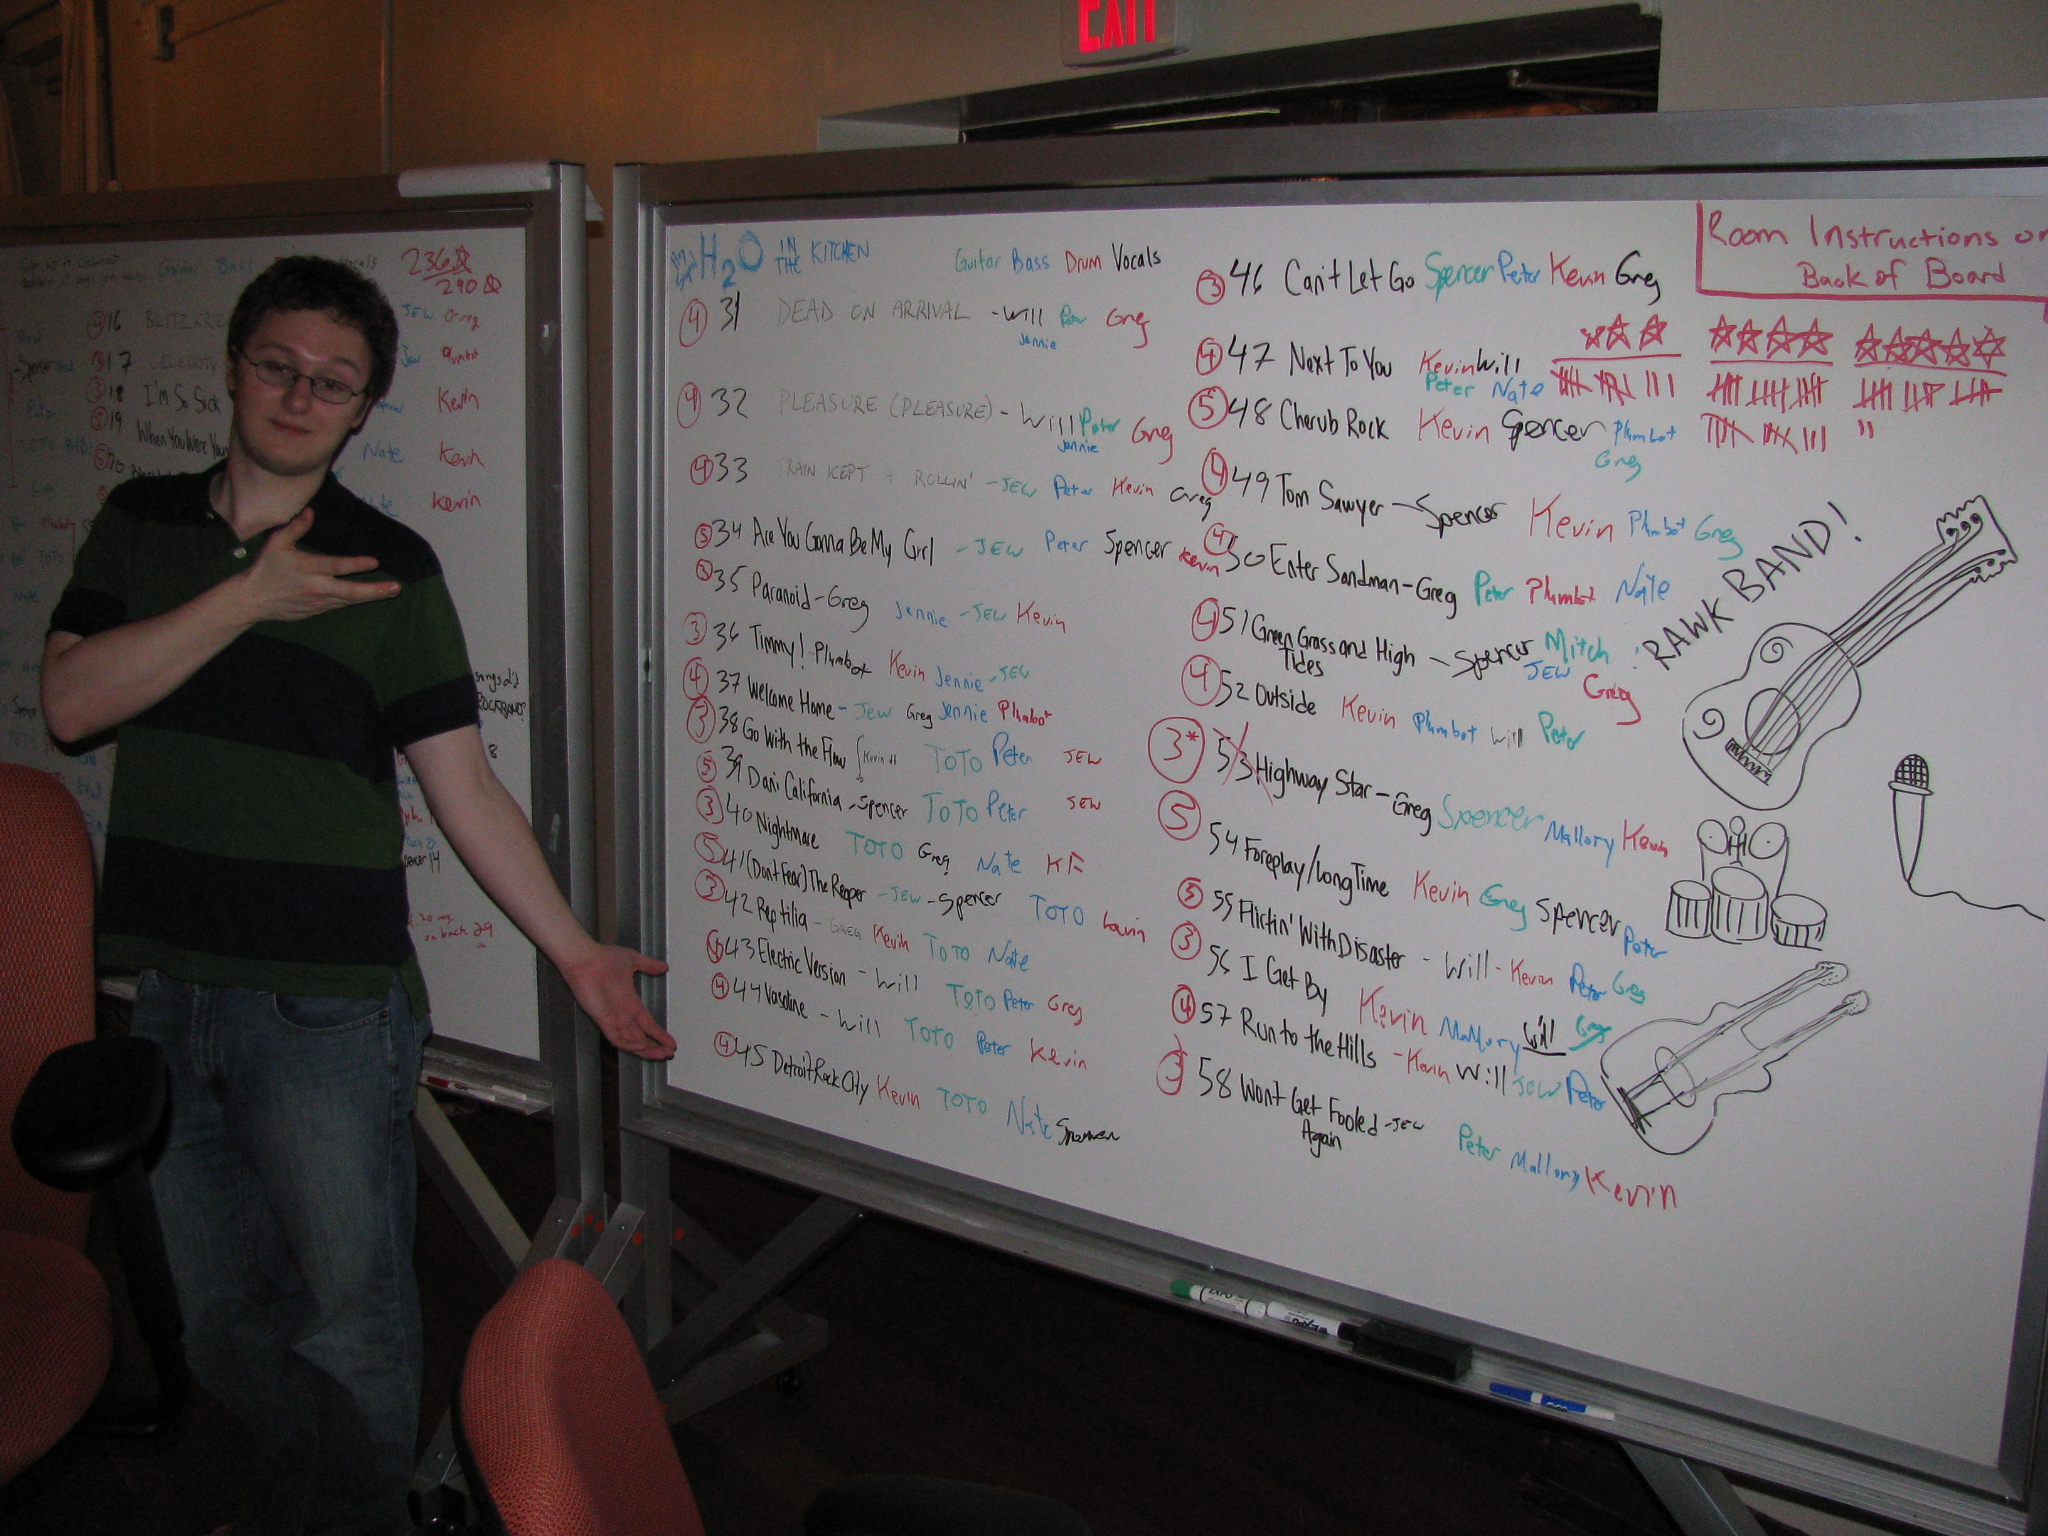 EXIT
236
290
16 BLITZKRIEG JEW Greg
17 CELEBRITY Jew Plumbot
18 I'm So Sick Kevin
19 When You Were Young Nate Kevin
20 Kevin
H2O IN THE KITCHEN
Guitar Bass Drum Vocals
4 31 DEAD ON ARRIVAL - Will Peter Greg
Jennie
4 32 PLEASURE (PLEASURE) - Will Peter Greg
Jennie
4 33 TRAIN KEPT A ROLLIN' - JEW Peter Kevin Greg
5 34 Are You Gonna Be My Girl - JEW Peter Spencer Kevin
3 35 Paranoid - Greg Jennie - JEW Kevin
3 36 Timmy! Plumbot Kevin Jennie - JEW
4 37 Welcome Home - Jew Greg Jennie Plumbot
3 38 Go With the Flow ∫ Kevin dt TOTO Peter JEW
5 39 Dani California - Spencer TOTO Peter JEW
3 40 Nightmare TOTO Greg Nate KF
5 41 (Don't Fear) The Reaper - JEW - Spencer TOTO Kevin
3 42 Reptilia - GREG Kevin TOTO Nate
43 Electric Version - Will TOTO Peter Greg
4 44 Vasoline - Will TOTO Peter Kevin
4 45 Detroit Rock City Kevin TOTO Nate Spencer
3 46 Can't Let Go Spencer Peter Kevin Greg
4 47 Next To You Kevin Will
Peter Nate
5 48 Cherub Rock Kevin Spencer Plumbot
Greg
4 49 Tom Sawyer - Spencer Kevin Plumbot Greg
4 50 Enter Sandman - Greg Peter Plumbot Nate
4 51 Green Grass and High - Spencer Mitch
Tides JEW Greg
4 52 Outside Kevin Plumbot Will Peter
3* 53 Highway Star - Greg Spencer Mallory Kevin
5 54 Foreplay/Long Time Kevin Greg Spencer Peter
5 55 Flirtin' With Disaster - Will - Kevin Peter Greg
3 56 I Get By Kevin Mallory Will Greg
4 57 Run to the Hills - Kevin Will JEW Peter
3 58 Wont Get Fooled - JEW Peter Mallory Kevin
Again
Room Instructions on
Back of Board
RAWK BAND!